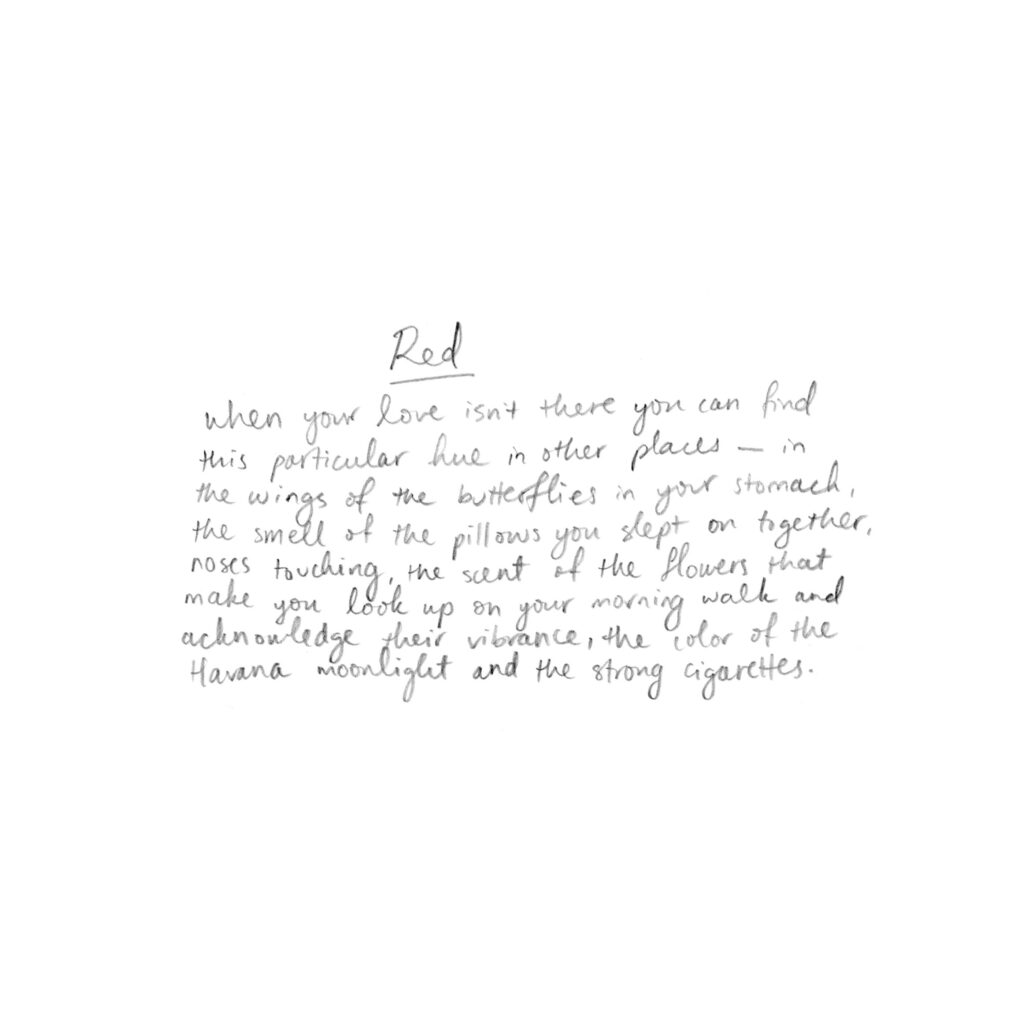 Red
when your love isn't there you can find
this particular hue in other places — in
the wings of the butterflies in your stomach,
the smell of the pillows you slept on together,
noses touching, the scent of the flowers that
make you look up on your morning walk and
acknowledge their vibrance, the color of the
Havana moonlight and the strong cigarettes.